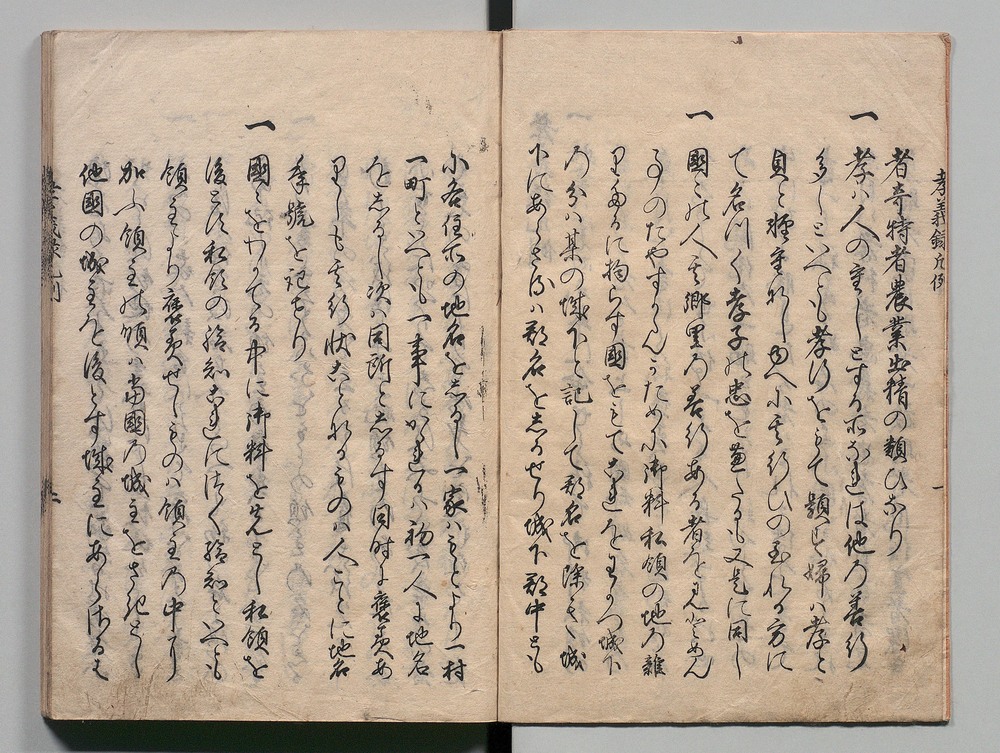 孝義録凡例
者奇特者農業出精の類ひなり
一
孝ハ人の重しとする所なれは他の善行
多しといへとも孝行をもて題す婦ハ孝と
貞と軽重なしゆへに其行ひの重れる方に
て名つく孝子の忠を兼たるも又是に同し
一
国々の人其郷里の善行ある者を見もとめん
事のたやすからんかために御料私領の地の雑
りあるに拘らす国をもてこれをわかつ城下
の分ハ某の城下と記して郡名を除き城
下にあらさるハ郡名をしるせり城下郡中とも
一
に各住所の地名をしるし一家ハもとより一村
一町といへとも一事にかゝれるハ初一人に地名
をしるし次ハ同所としるす同時に褒美あ
りしも其行状ことなるものハ人ことに地名
年号を記せり
一
国々をわかてる中に御料を先とし私領を
後とす私領の給知これに次く給知といへとも
領主より褒美せしものハ領主の中に
加ふ領主の順ハ当国の城主をさきとし
他国の城主を後とす城主にあらさるは
孝義録凡例
二